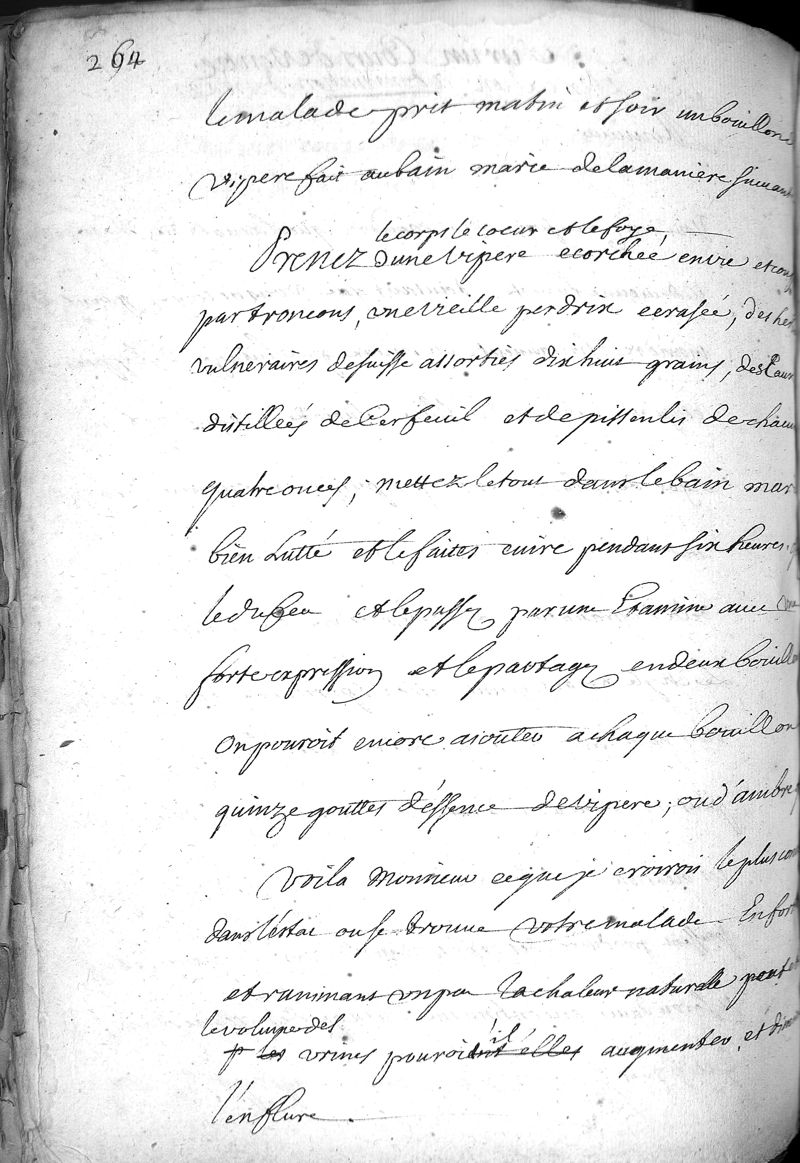 264
le malade prit matin et soir un bouillon
vipere fait au bain marie de la maniere suivant
le corps le coeur et le foye
Prenez d'une vipere ecorchée, en vie et coup
par troncons, une vieille perdrix ecrasée, des her
vulneraires de suisse assorties dix huit grains, des eaux
distillées de Cerfeuil et de pissenlis de chacu
quatre onces; mettez le tout dans le bain mar
bien Lutté et le faites cuire pendant six heures
le du feu et le passez par une Etamine avec une
forte expression et le partagez en deux bouill
On pouroit encore aiouter a chaque bouillon
quinze gouttes d'éssence de vipere, ou d'ambre
Voila Monsieur ce que je croirois le plus con
dans l'éstat ou se trouve votre malade En for
et ranimant un peu la chaleur naturelle peut
le volume des
les urines pouroient il elles augmenter, et dim
l'énflure.